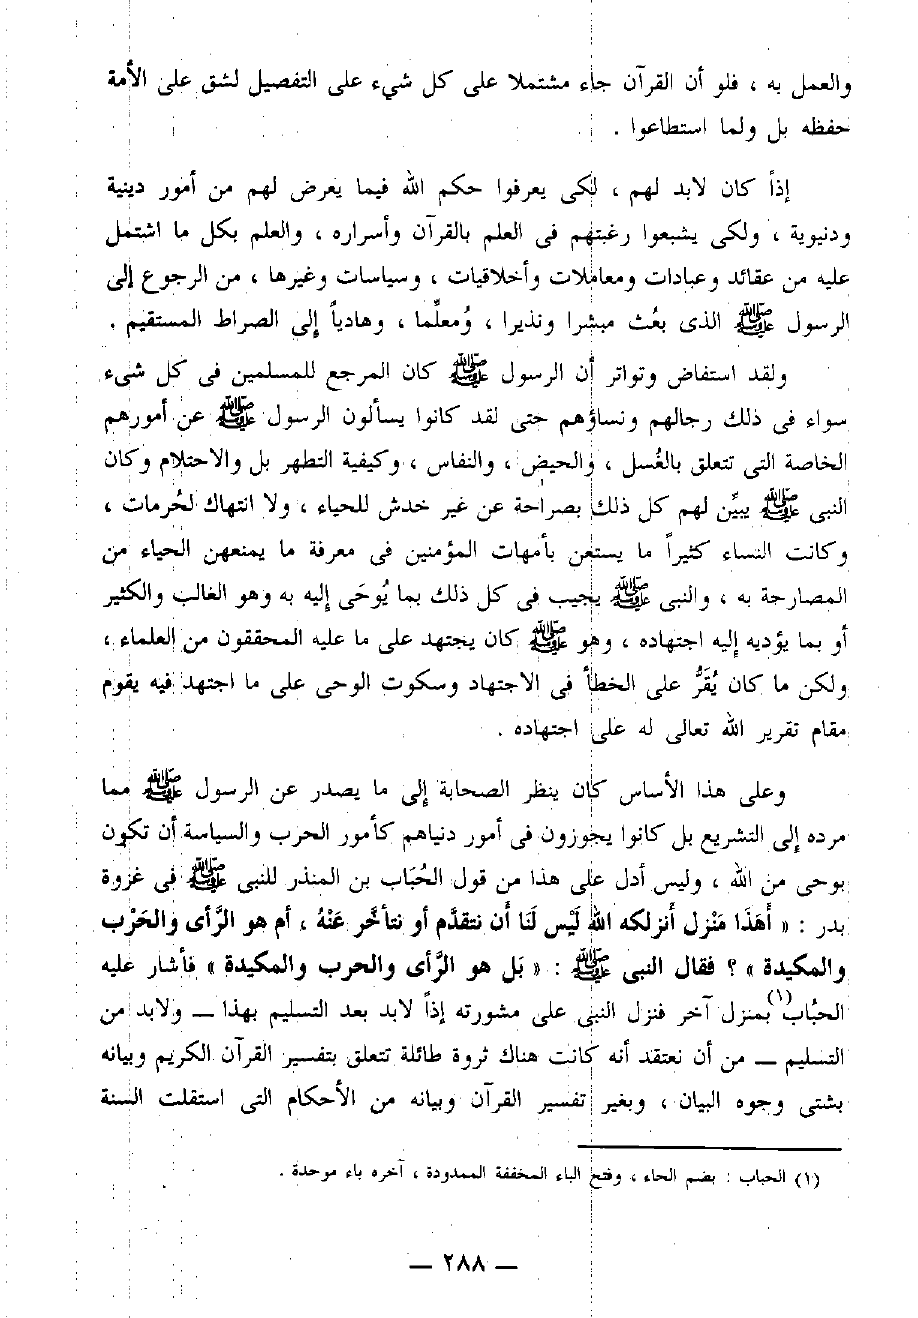 والعمل به ، فلو أن القرآن جاء مشتملا على كل شيء على التفصيل لشق على الأمة
حفظه بل ولما استطاعوا .
إذاً كان لابد لهم ، لكى يعرفوا حكم الله فيما يعرض لهم من أمور دينية
ودنيوية ، ولكى يشبعوا رغبتهم فى العلم بالقرآن وأسراره ، والعلم بكل ما اشتمل
عليه من عقائد وعبادات ومعاملات وأخلاقيات ، وسياسات وغيرها ، من الرجوع إلى
الرسول ﷺ الذى بعُث مبشرا ونذيرا ، وُمعلِّما ، وهادياً إلى الصراط المستقيم .
ولقد استفاض وتواتر أن الرسول ﷺ كان المرجع للمسلمين فى كل شىء
سواء فى ذلك رجالهم ونساؤهم حتى لقد كانوا يسألون الرسول ﷺ عن أمورهم
الخاصة التى تتعلق بالغُسل ، والحيض ، والنفاس ، وكيفية التطهر بل والاحتلام وكان
النبى ﷺ يبيِّن لهم كل ذلك بصراحة عن غير خدش للحياء ، ولا انتهاك لحُرمات ،
وكانت النساء كثيراً ما يستعن بأمهات المؤمنين فى معرفة ما يمنعهن الحياء من
المصارحة به ، والنبى ﷺ يجيب فى كل ذلك بما يُوحَى إليه به وهو الغالب والكثير
أو بما يؤديه إليه اجتهاده ، وهو ﷺ كان يجتهد على ما عليه المحققون من العلماء ،
ولكن ما كان يُقَرُّ على الخطأ فى الاجتهاد وسكوت الوحى على ما اجتهد فيه يقوم
مقام تقرير الله تعالى له على اجتهاده .
وعلى هذا الأساس كان ينظر الصحابة إلى ما يصدر عن الرسول ﷺ مما
مرده إلى التشريع بل كانوا يجوزون فى أمور دنياهم كأمور الحرب والسياسة أن تكون
بوحى من الله ، وليس أدل على هذا من قول الحُبَاب بن المنذر للنبى ﷺ فى غزوة
بدر : « أَهَذَا مَنْزِل أنزلكه اللهُ لَيْس لَنَا أَن نتقدَّم أو نتأخَّر عَنْهُ ، أم هو الرَّأى والحَرْب
والمكيدة » ؟ فقال النبى ﷺ : « بَل هو الرَّأى والحرب والمكيدة » فأشار عليه
الحبُاب(١) بمنزل آخر فنزل النبى على مشورته إذاً لابد بعد التسليم بهذا ــ ولابد من
التسليم ــ من أن نعتقد أنه كانت هناك ثروة طائلة تتعلق بتفسير القرآن الكريم وبيانه
بشتى وجوه البيان ، وبغير تفسير القرآن وبيانه من الأحكام التى استقلت السنة
(١) الحباب : بضم الحاء ، وفتح الباء المخففة الممدودة ، آخره باء موحدة .
ــ ٢٨٨ ــ